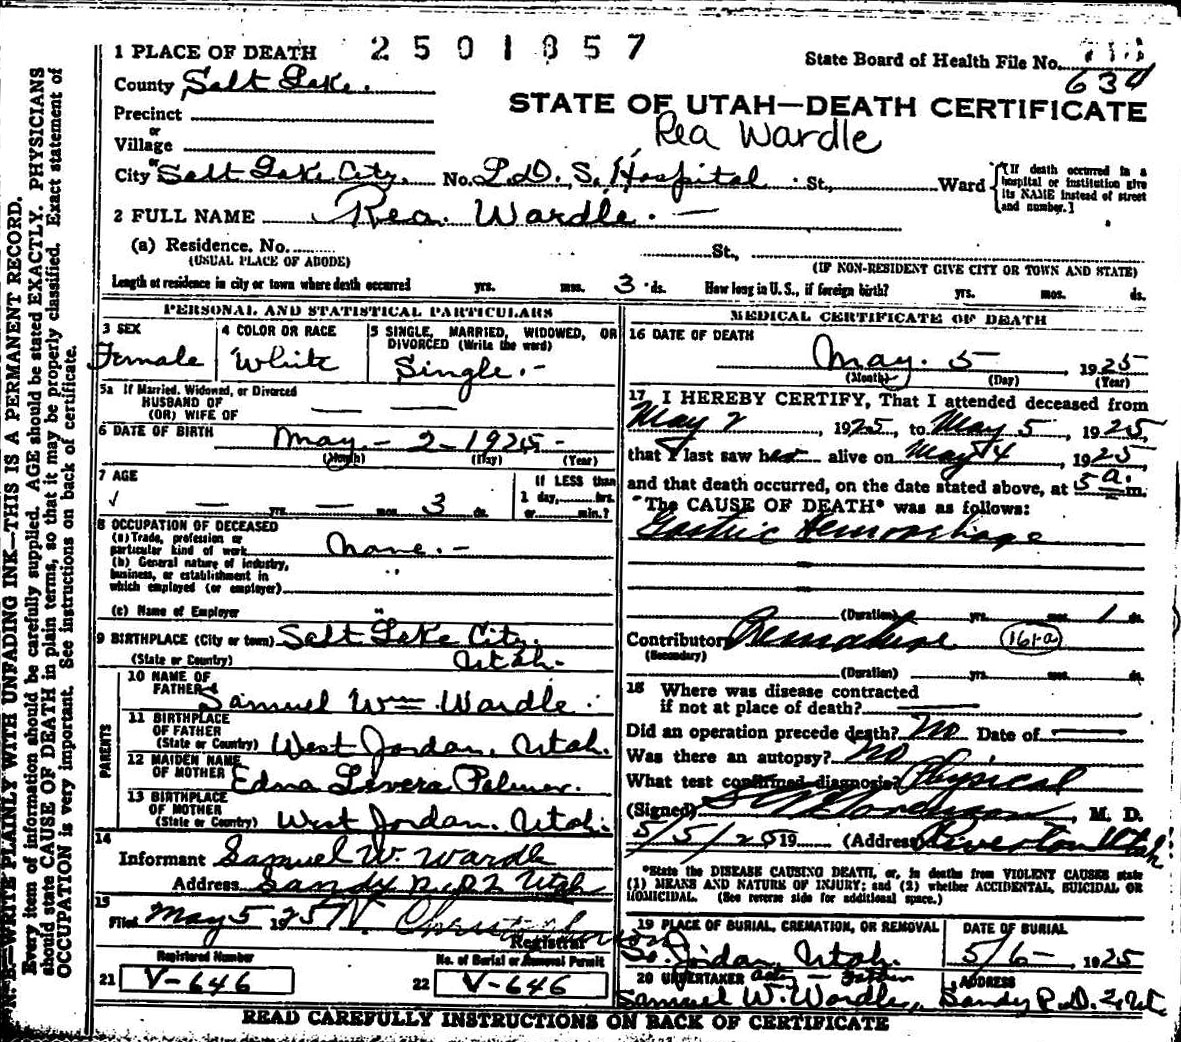 1 PLACE OF DEATH 2501857 State Board of Health File No.
County Salt Lake. 634
STATE OF UTAH—DEATH CERTIFICATE
Precinct
or
Village
Rea Wardle
or
City Salt Lake City. No. L.D.S. Hospital St., Ward
{[If death occurred in a hospital or institution give its NAME instead of street and number.]
2 FULL NAME Rea. Wardle. —
(a) Residence. No. St.,
(USUAL PLACE OF ABODE) (IF NON-RESIDENT GIVE CITY OR TOWN AND STATE)
Length of residence in city or town where death occurred yrs. mos. 3 ds. How long in U. S., if foreign birth? yrs. mos. ds.
PERSONAL AND STATISTICAL PARTICULARS
3 SEX
Female
4 COLOR OR RACE
White
5 SINGLE, MARRIED, WIDOWED, OR DIVORCED (Write the word)
Single.—
5a If Married, Widowed, or Divorced
HUSBAND OF
(OR) WIFE OF — —
6 DATE OF BIRTH May — 2 — 1925 —
(Month) (Day) (Year)
7 AGE
— yrs. — mos. 3 ds.
If LESS than 1 day, hrs. or min.?
8 OCCUPATION OF DECEASED
(a) Trade, profession or
particular kind of work None.—
(b) General nature of industry,
business, or establishment in
which employed (or employer)
(c) Name of Employer
9 BIRTHPLACE (City or town) Salt Lake City.
(State or Country) Utah.
PARENTS
10 NAME OF
FATHER Samuel Wm Wardle.
11 BIRTHPLACE
OF FATHER
(State or Country) West Jordan, Utah.
12 MAIDEN NAME
OF MOTHER Edna Levera Palmer.
13 BIRTHPLACE
OF MOTHER
(State or Country) West Jordan, Utah.
14
Informant Samuel W. Wardle
Address Sandy R.D.2 Utah
15
Filed May 5 1925
Registrar
Registered Number
21 V-646
No. of Burial or Removal Permit
22 V-646
MEDICAL CERTIFICATE OF DEATH
16 DATE OF DEATH
May. 5 1925
(Month) (Day) (Year)
17 I HEREBY CERTIFY, That I attended deceased from
May 2, 1925, to May 5, 1925,
that I last saw her alive on May 4, 1925,
and that death occurred, on the date stated above, at 5 a.m.
The CAUSE OF DEATH* was as follows:
Gastric Hemorrhage
(Duration) yrs. mos. 1 ds.
Contributory Premature 161-a
(Secondary)
(Duration) yrs. mos. ds.
18 Where was disease contracted
if not at place of death?
Did an operation precede death? No Date of
Was there an autopsy? No
What test confirmed diagnosis? Physical
(Signed) , M. D.
5/5/25 19 (Address) Riverton Utah
*State the DISEASE CAUSING DEATH, or, in deaths from VIOLENT CAUSES state
(1) MEANS AND NATURE OF INJURY; and (2) whether ACCIDENTAL, SUICIDAL OR
HOMICIDAL. (See reverse side for additional space.)
19 PLACE OF BURIAL, CREMATION, OR REMOVAL
So. Jordan, Utah.
DATE OF BURIAL
5/6 — , 1925
20 UNDERTAKER act — father
Samuel W. Wardle,
ADDRESS
Sandy R.D. 2, Ut
READ CAREFULLY INSTRUCTIONS ON BACK OF CERTIFICATE
N. B.—WRITE PLAINLY WITH UNFADING INK—THIS IS A PERMANENT RECORD.
Every item of information should be carefully supplied. AGE should be stated EXACTLY. PHYSICIANS
should state CAUSE OF DEATH in plain terms, so that it may be properly classified. Exact statement of
OCCUPATION is very important. See instructions on back of certificate.